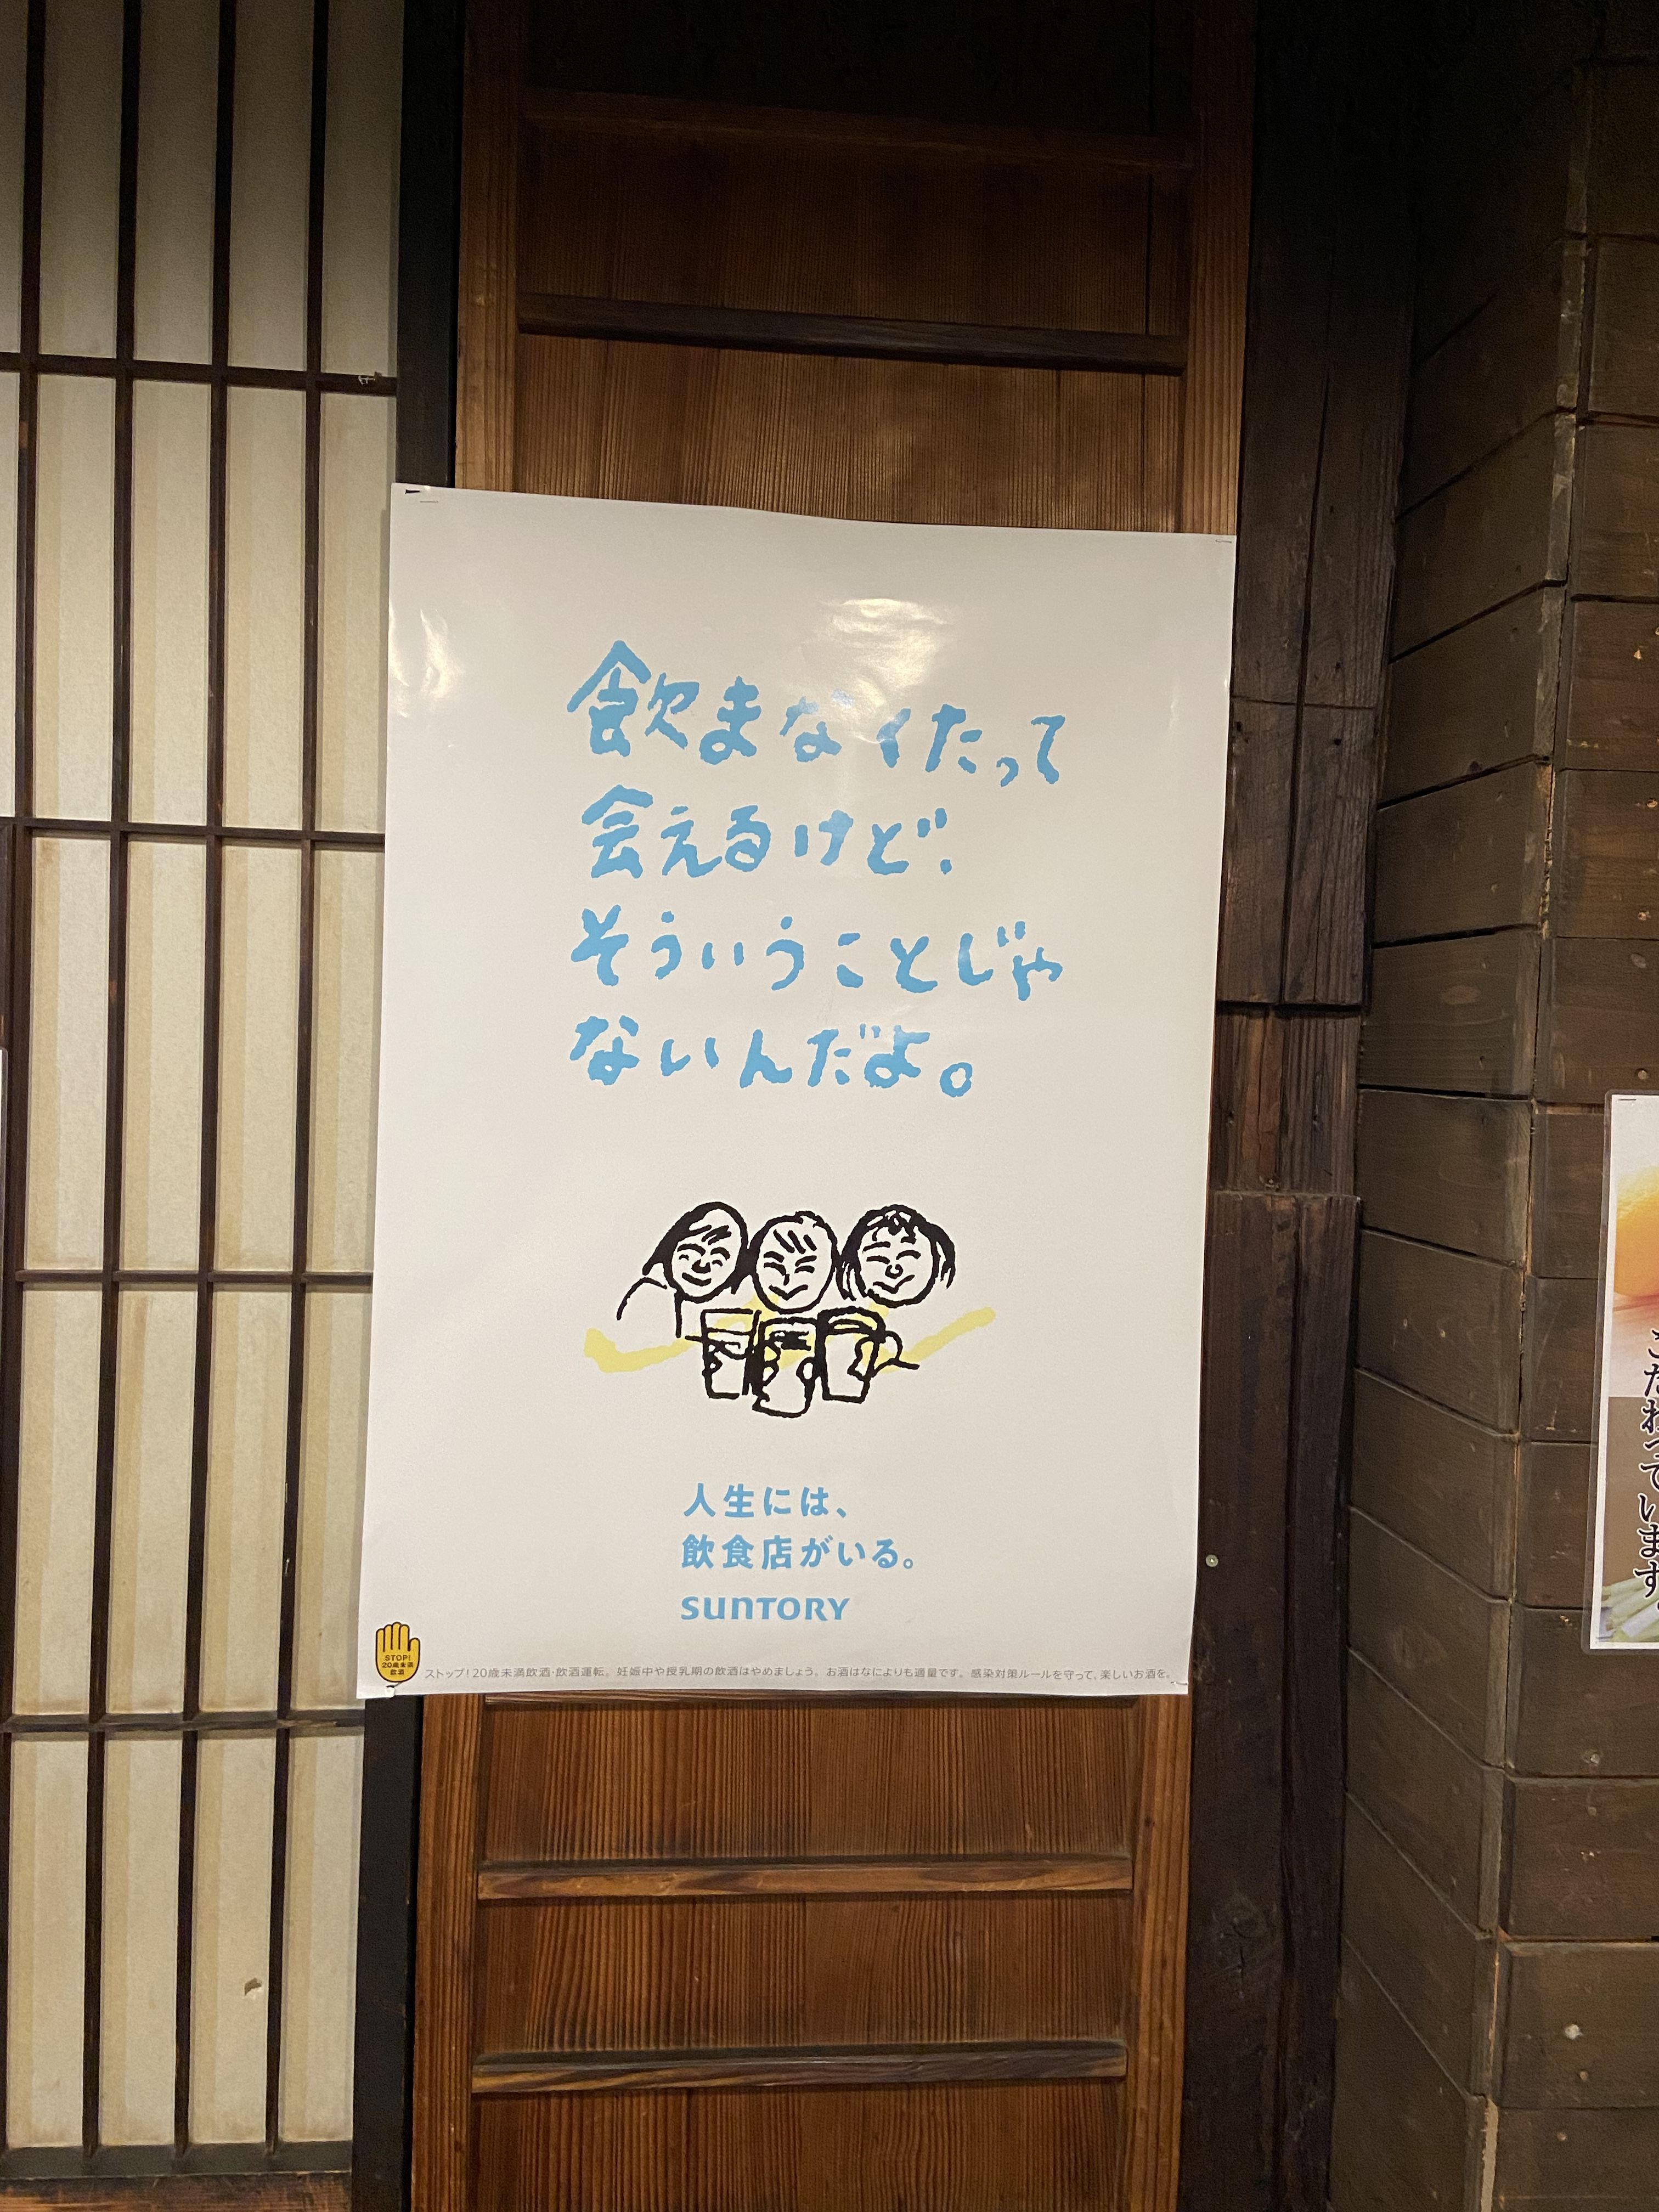 飲まなくたって
会えるけど、
そういうことじゃ
ないんだよ。
人生には、
飲食店がいる。
SUNTORY
STOP!
20歳未満
飲酒
ストップ!20歳未満飲酒・飲酒運転。妊娠中や授乳期の飲酒はやめましょう。お酒はなによりも適量です。感染対策ルールを守って、楽しいお酒を。
こだわっています。